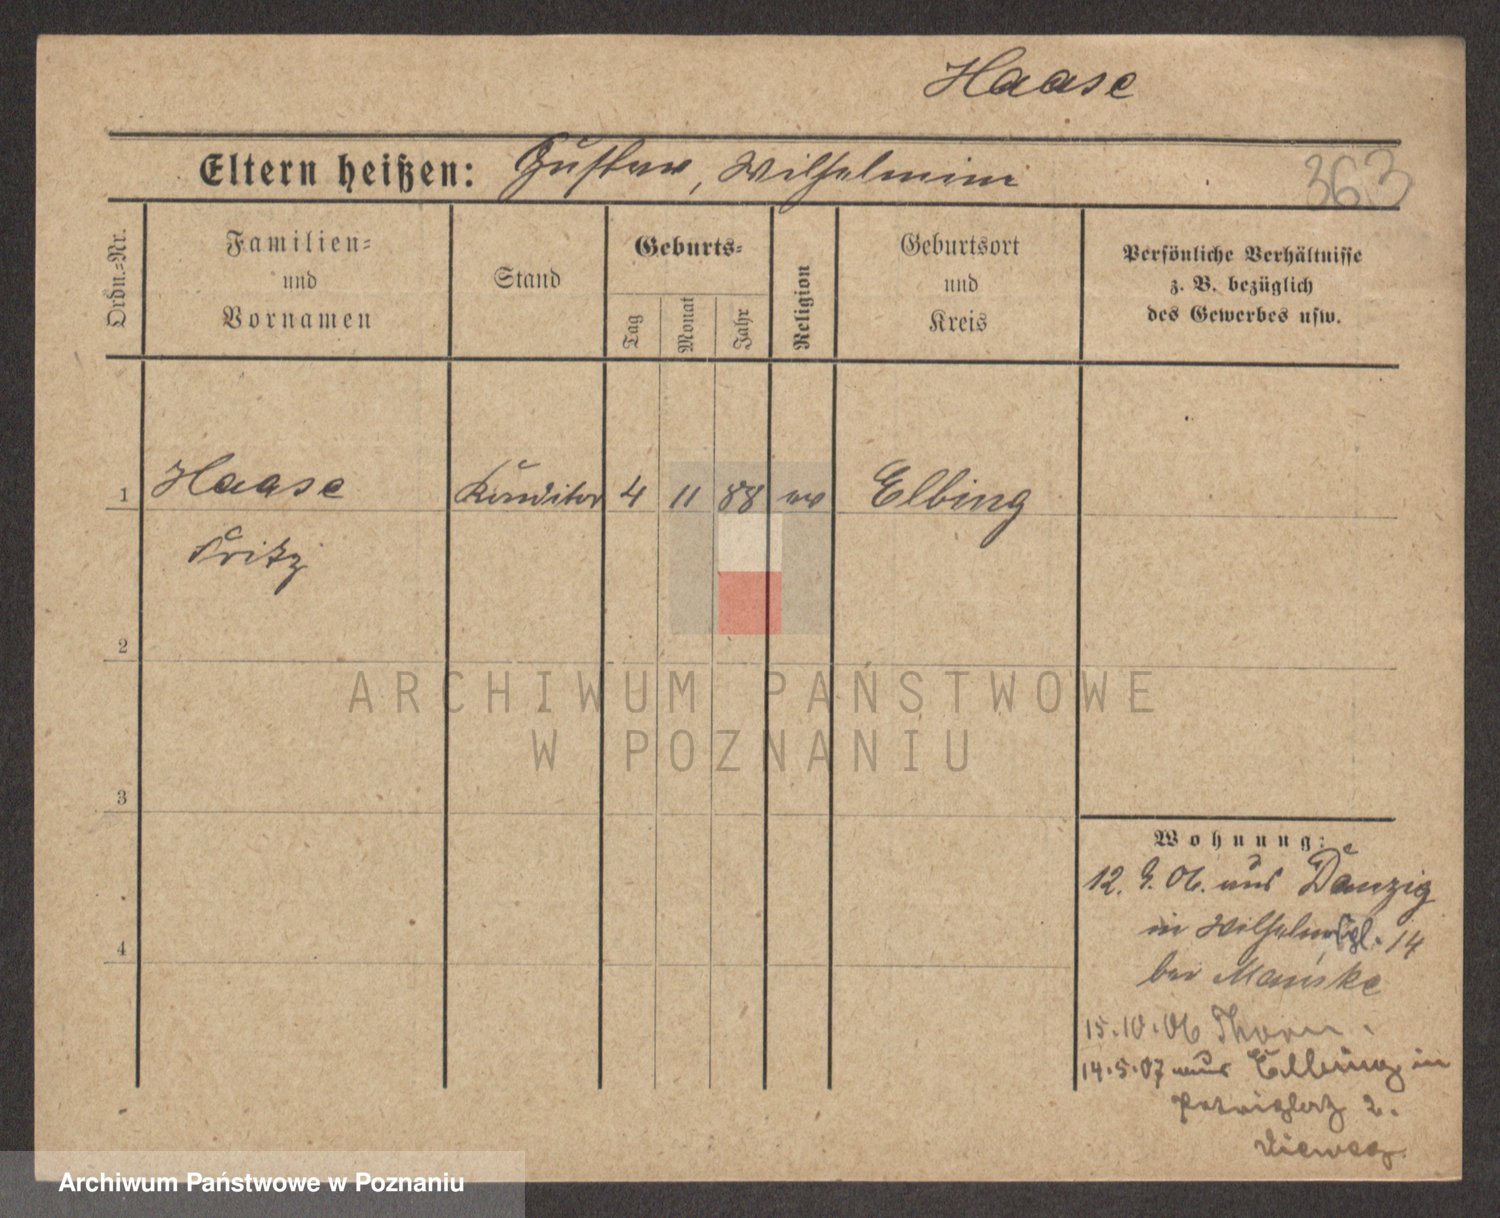 Haase
Eltern heißen: Gustav, Wilhelmine
363
Ordn.=Nr.
Familien=
und
Vornamen
Stand
Geburts=
Tag
Monat
Jahr
Religion
Geburtsort
und
Kreis
Persönliche Verhältnisse
z. B. bezüglich
des Gewerbes usw.
1 Haase Konditor 4 11 88 ev Elbing
Fritz
2
3
4
Wohnung:
12. 9. 06. aus Danzig
in Wilhelmspl. 14
bei Manske
15.10.06 Thorn.
14.5.07 aus Elbing in
Petriplatz 2.
ARCHIWUM PAŃSTWOWE
W POZNANIU
Archiwum Państwowe w Poznaniu